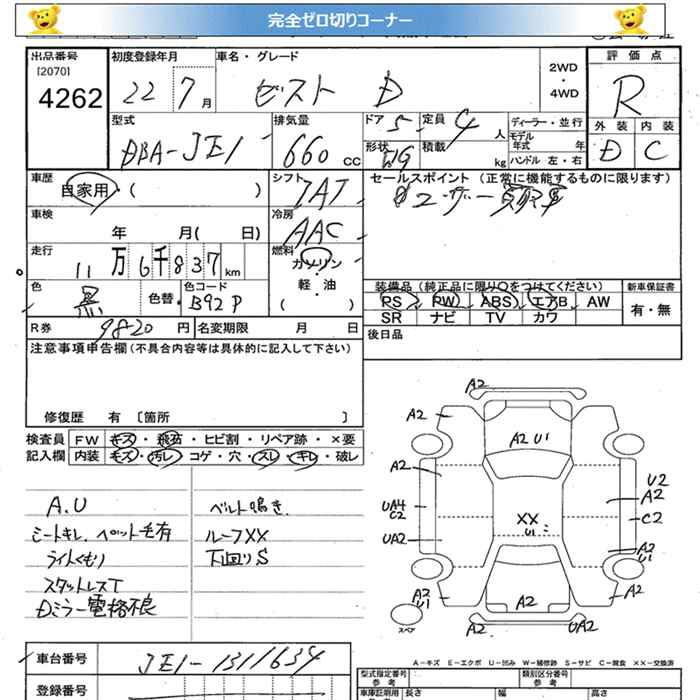 完全ゼロ切りコーナー
出品番号 初度登録年月 車名・グレード 2WD ・ 4WD 評価点
[2070]
4262 22 7月 ゼスト D R
外装 内装
D C
型式 排気量 ドア 定員 ディーラー・並行
DBA-JE1 660 cc 5 4 人 モデル年式 年
形状 積載 kg ハンドル 左・右
車歴 シフト セールスポイント (正常に機能するものに限ります)
自家用・( ) IAT
車検 冷房
年 月( 日) AAC
走行 燃料
11万6千837km ガソリン
軽・油
( )
色 色替 色コード 装備品(純正品に限り○をつけてください) 新車保証書
黒 B92P PS PW ABS エアB AW 有・無
SR ナビ TV カワ
R券 9820円 名変期限 月 日 後日品
注意事項申告欄(不具合内容等は具体的に記入して下さい)
修復歴 有 [箇所 ]
検査員 FW キズ・飛石・ヒビ割・リペア跡・×要
記入欄 内装 キズ・汚レ・コゲ・穴・スレ・キレ・破レ
A.U ベルト鳴き.
シートキレ、ペット毛有 ルーフXX
ライトくもり 下回りS
スタットレスT
Dミラー電格不良
A2
A2 A2
A2 U1
A2 U2
A2
UA4
C2 C2
XX
U1
UA2 A2
U1
A2
U1 A2 A2
A2 UA2
スペア
A-キズ E-エクボ U-凹み W-補修跡 S-サビ C-腐食 XX-交換済
車台番号 JE1-1311634
型式指定番号 参考 類別区分番号 参考
登録番号 車庫証明用 参考 長さ 幅 高さ